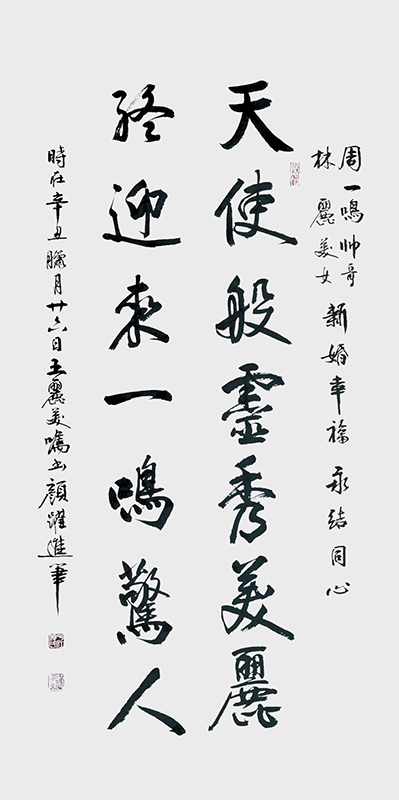 周一鳴帅哥
林麗美女
新婚幸福永结同心
天使般靈秀美麗
终迎来一鳴驚人
時在辛丑臘月廿六日王麗美囑书顔躍進筆